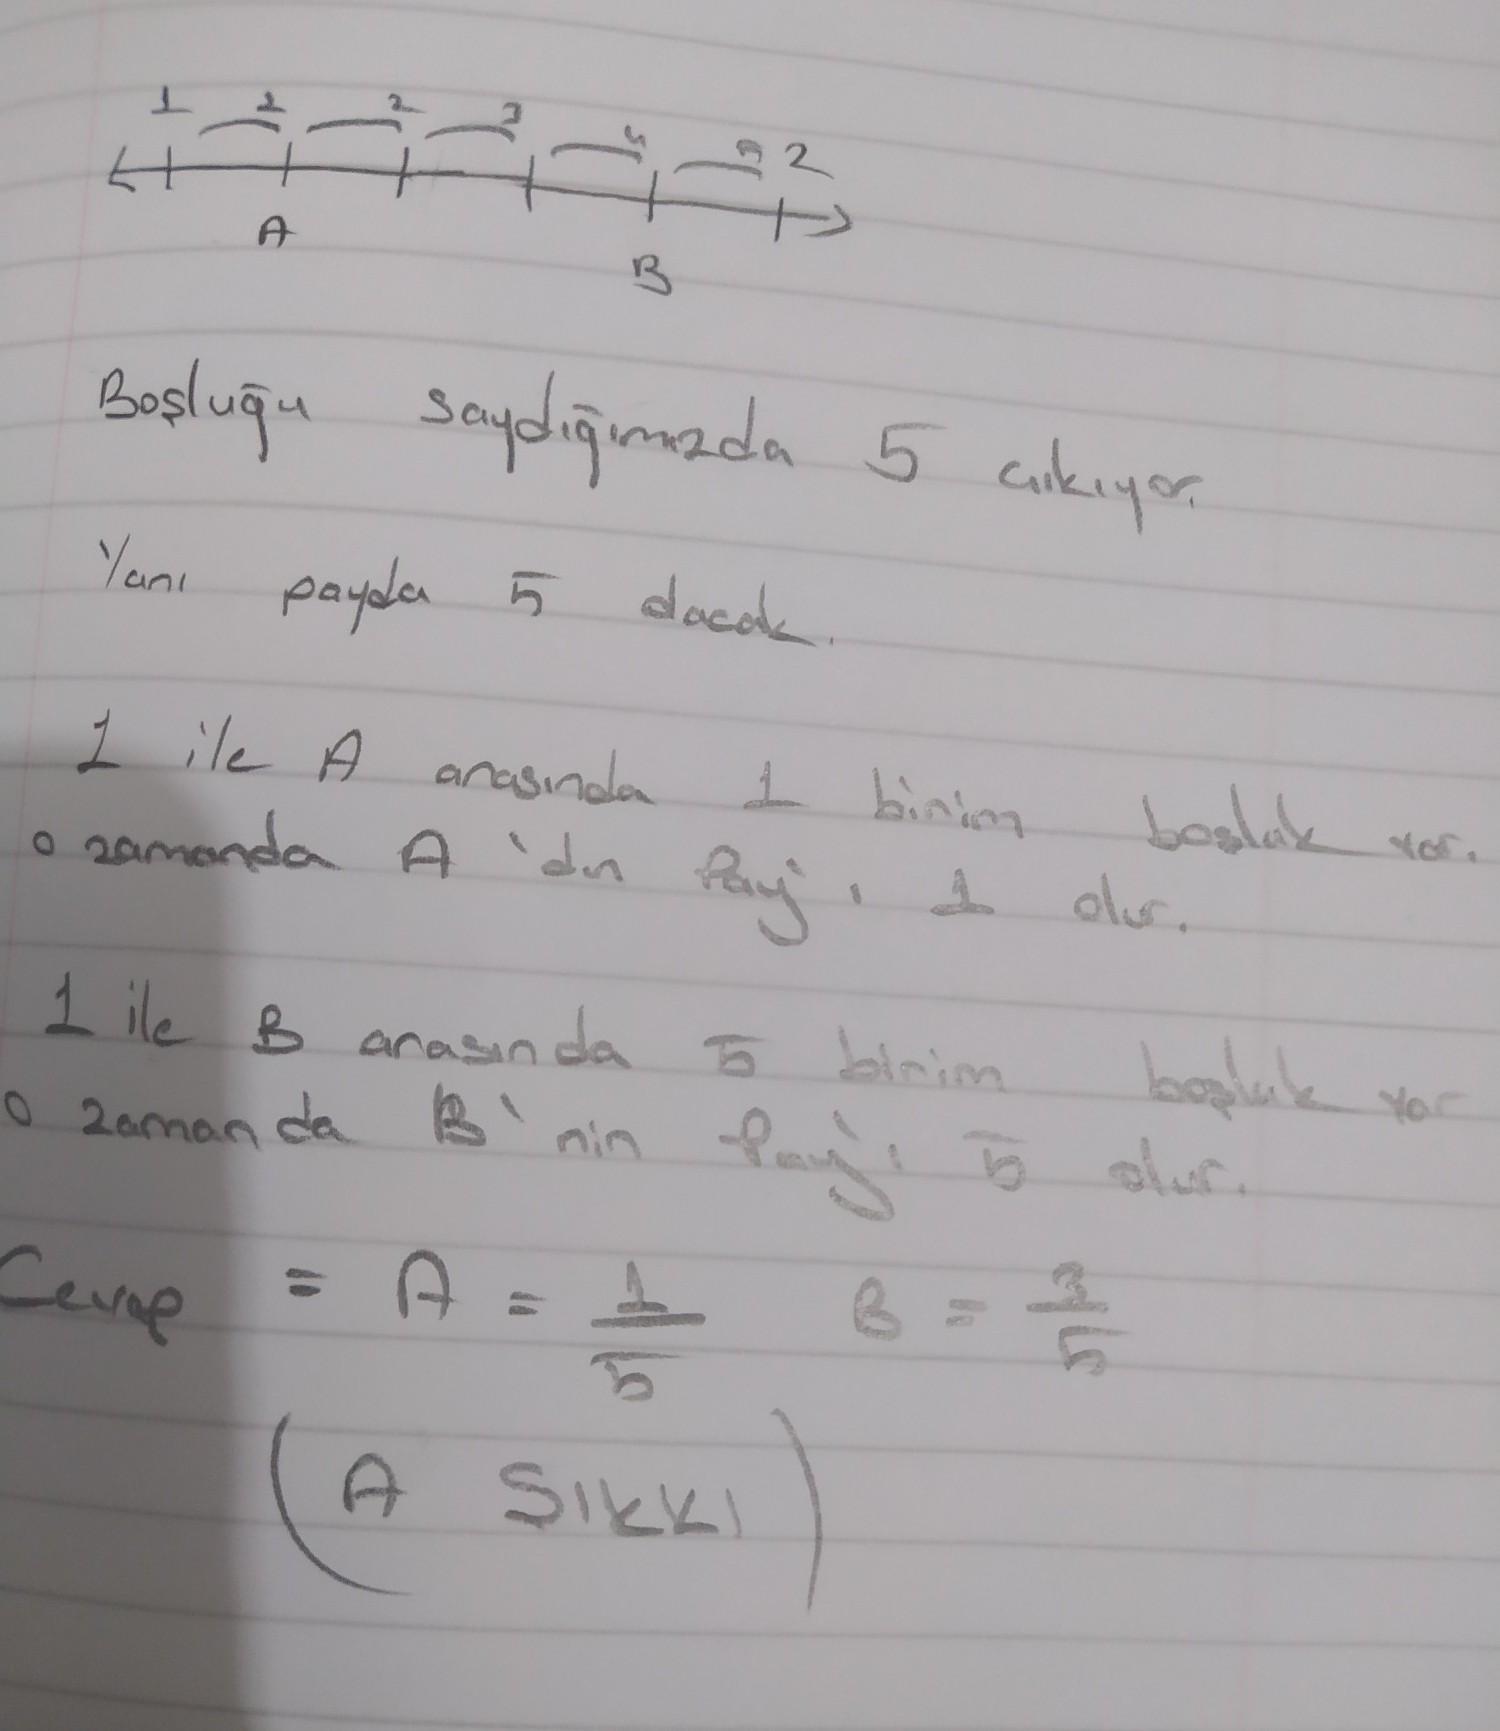 1 1 2 3 4 5 2
A
B
Boşluğu saydığımızda 5 cıkıyor.
Yanı payda 5 olacak.
1 ile A arasında 1 birim boşluk var.
o zamanda A'dın Pay'ı 1 olur.
1 ile B arasında 5 birim boşluk var
o zamanda B'nin Pay'ı 5 olur.
Cevap = A = 1/5 B = 3/5
(A ŞIKKI)